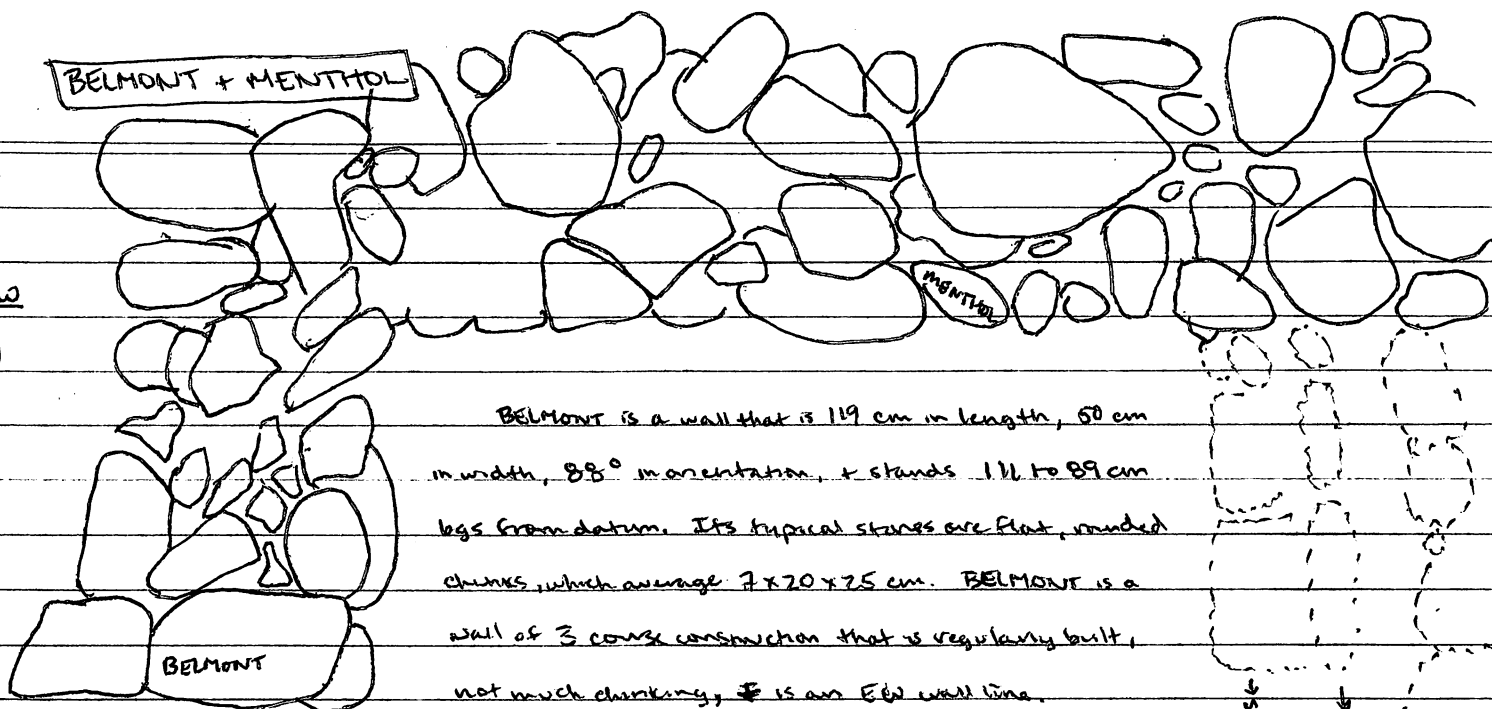 BELMONT + MENTHOL
MENTHOL
BELMONT is a wall that is 119 cm in length, 50 cm
in width, 88° in orientation, + stands 111 to 89 cm
bgs from datum. Its typical stones are flat, rounded
chunks, which average 7 x 20 x 25 cm. BELMONT is a
wall of 3 course construction that is regularly built,
not much chinking, is an E/W wall line.
BELMONT